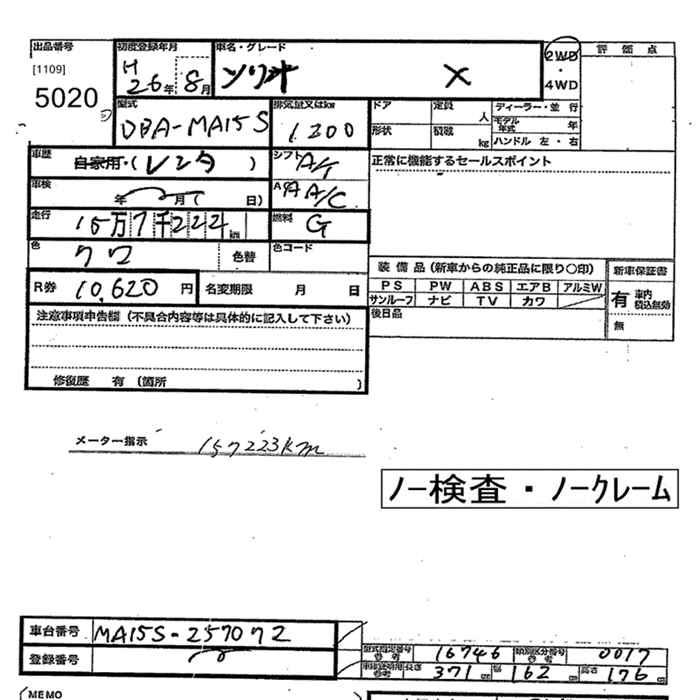 出品番号
[1109]
5020
初度登録年月
H 26年 8月
車名・グレード
ソリオ X
2WD
・
4WD
評価点
型式
DBA-MA15S
排気量又はkw
1.200
ドア
定員 人
ディーラー・並行
モデル年式 年
形状
積載 kg
ハンドル 左・右
車歴
自家用・(レンタ)
シフト
A/T
正常に機能するセールスポイント
車検
年 月( 日)
A/C
走行
15万7千222km
燃料
G
色
クロ
色替
色コード
装備品(新車からの純正品に限り○印)
新車保証書
PS PW ABS エアB アルミW
サンルーフ ナビ TV カワ
有 車内積込無効
無
後日品
R券
10,620円
名変期限 月 日
注意事項申告欄(不具合内容等は具体的に記入して下さい)
修復歴 有(箇所 )
メーター指示 157223km
ノー検査・ノークレーム
車台番号
MA15S-257072
登録番号
型式指定番号 16746
類別区分番号 0017
長さ 371cm 幅 162cm 高さ 176
MEMO